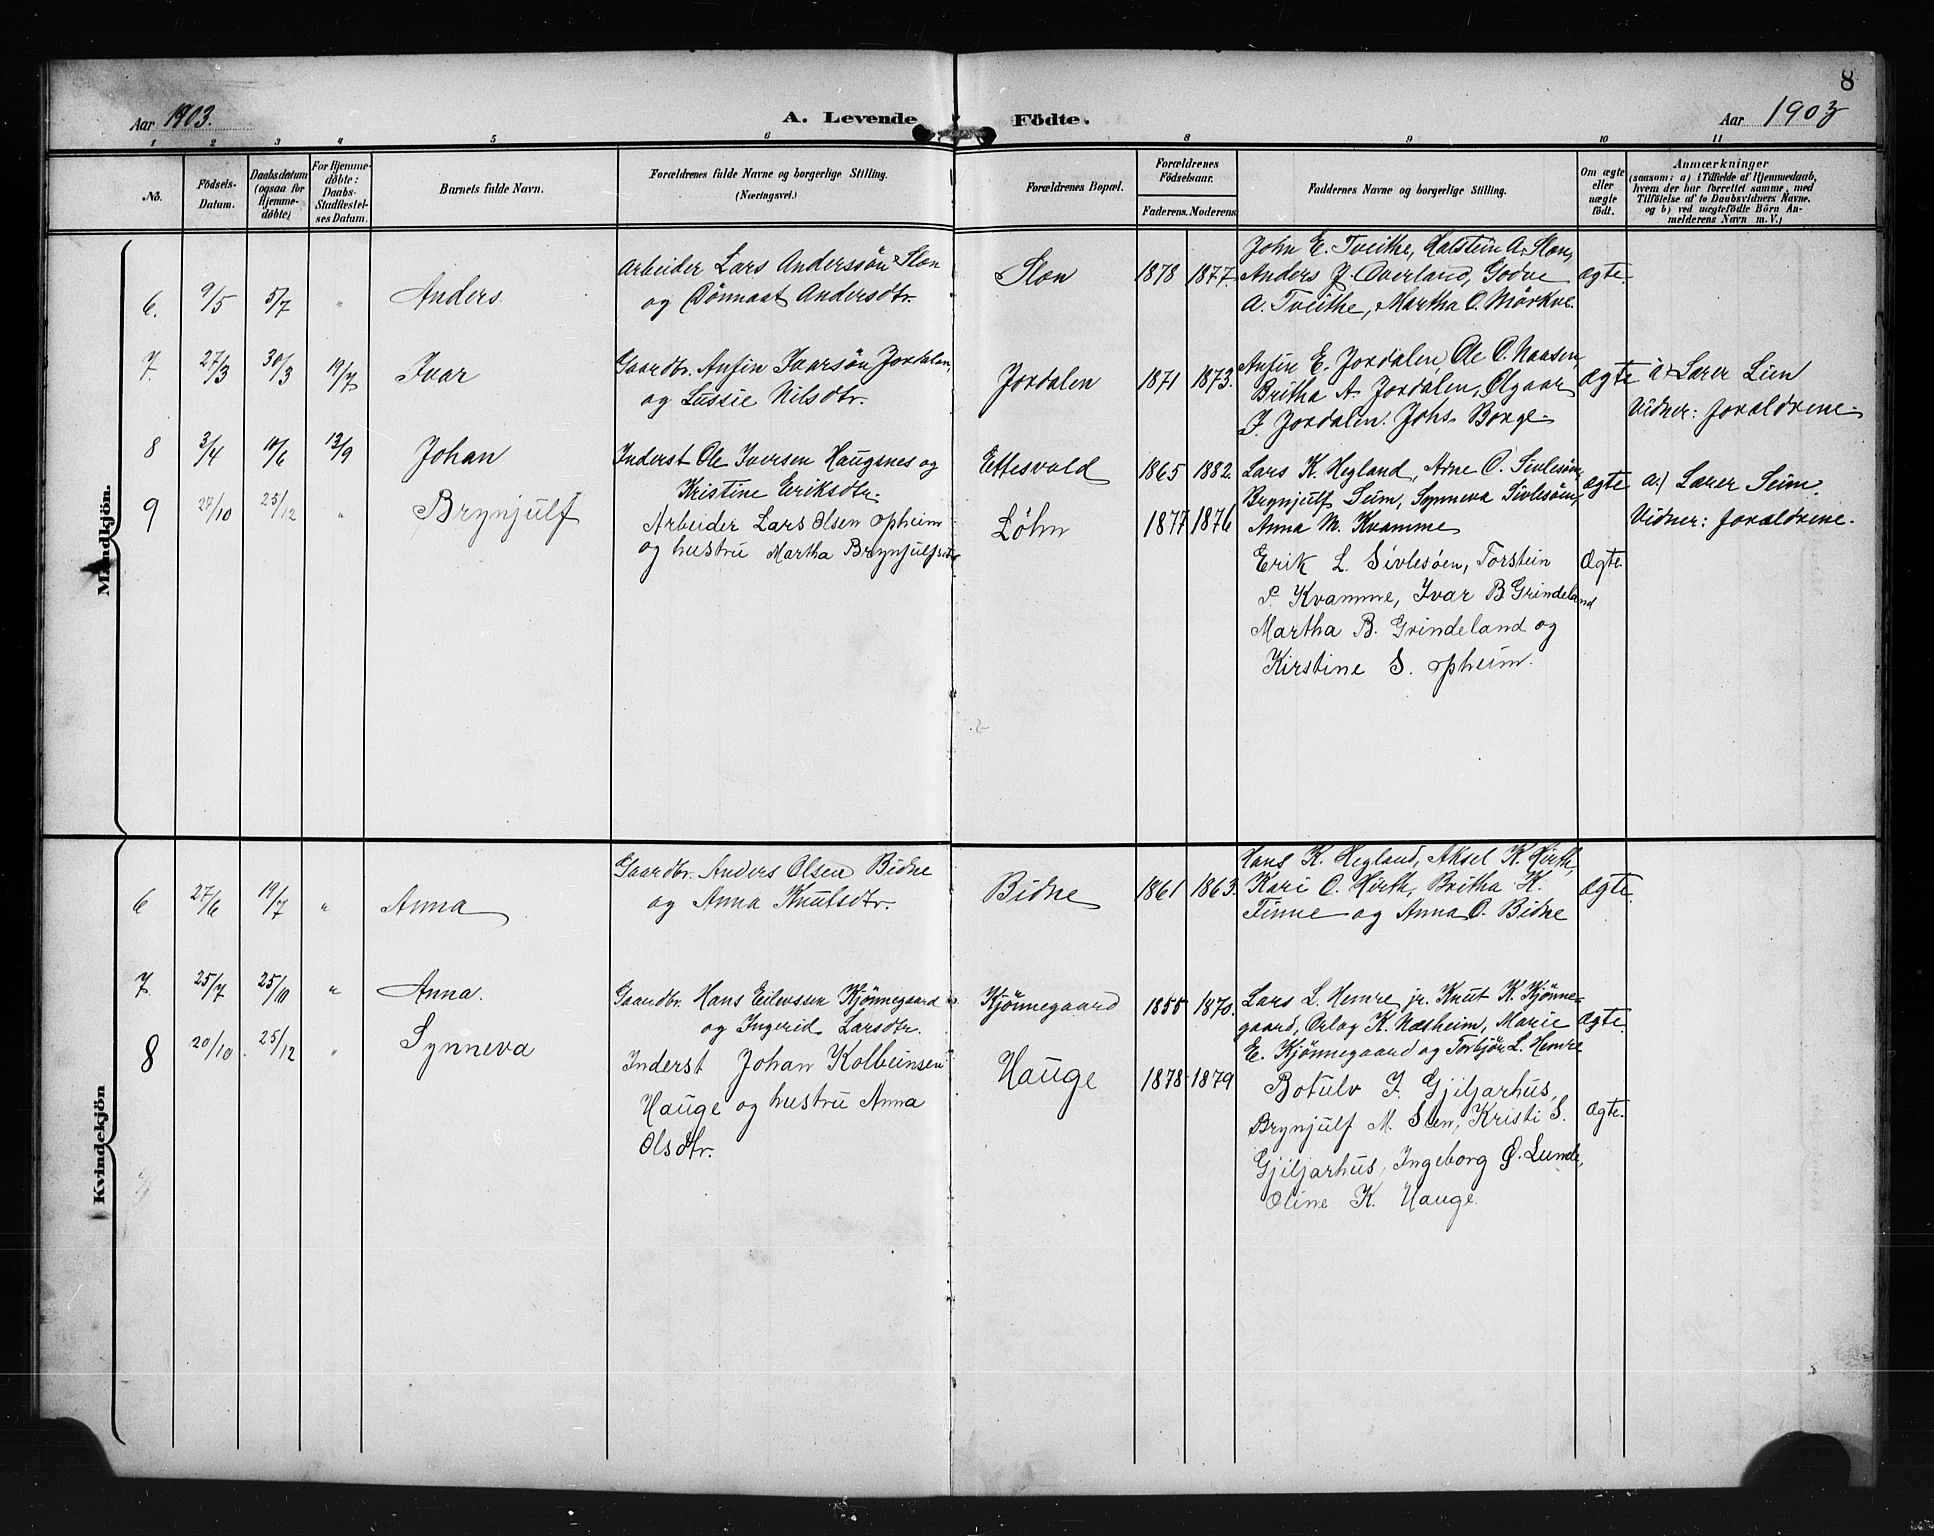 8
Aar 1903.
A. Levende Födte.
Aar 1903
1 2 3 4 5 6 8 9 10 11
No.
Födsels-Datum.
Daabsdatum (ogsaa for Hjemme-döbte)
For Hjemme-döbte: Daabs-Stadfæstel-ses Datum.
Barnets fulde Navn.
Forældrenes fulde Navne og borgerlige Stilling.
(Næringsvei.)
Forældrenes Bopæl.
Forældrenes Födselsaar.
Faderens. Moderens.
Faddernes Navne og borgerlige Stilling.
Om ægte eller uægte födt.
Anmærkninger
(saasom: a) i Tilfælde af Hjemmedaab,
hvem der har forrettet samme, med
Tilföielse af to Daabsvidners Navne,
og b) ved uægtefödte Börn An-
melderens Navn m. V.)
Mandkjön.
6. 9/5 5/7 " Anders
Arbeider Lars Anderssøn Slon
og Dønnaat Andersdtr.
Slon 1878 1877.
John E. Tveithe, Halstein A. Slon,
Anders J. Overland, Godve
A. Tveithe, Martha O. Mörkve.
Ægte.
7. 27/3 30/3 19/7 Ivar
Gaardbr. Anfin Ivarsøn Jordalen,
og Lussie Nilsdtr.
Jordalen 1871 1873.
Anfin E. Jordalen, Ole O. Naasen,
Britha A. Jordalen, Olgaar
I. Jordalen. Johs. Borge.
Ægte
a) Lærer Lien
Vidner: forældrene.
8 3/4 10/6 13/9 Johan
Inderst Ole Iversen Haugsnes og
Kristine Eriksdtr.
Ettesvold 1865 1882.
Lars K. Hegland, Arne O. Sivlesöen,
Brynjulf Seim, Synneva Sivlesöen,
Anna M. Kvamme
Ægte
a.) Lærer Seim.
Vidner: forældrene.
9 27/10 25/12 " Brynjulf
Arbeider Lars Olsen Opheim
og hustru Martha Brynjulfsdtr
Løhn 1877 1876
Erik L. Sivlesöen, Torstein
P. Kvamme, Ivar B Grindeland
Martha B. Grindeland og
Kirstine S. Opheim.
Ægte.
Kvindekjön
6 27/6 19/7 " Anna
Gaardbr. Anders Olsen Bidne
og Anna Knutsdtr.
Bidne 1861 1863.
Hans K. Hegland, Aksel K. Hirth,
Kari O. Hirth, Britha K.
Finne og Anna O. Bidne
Ægte.
7. 25/7 25/10 " Anna.
Gaardbr. Hans Eilevssen Kjönnegaard
og Ingerid Larsdtr.
Kjönnegaard 1855 1870.
Lars L. Hemre jr. Knut K. Kjönne-
gaard, Orlog K. Næsheim, Marie
E. Kjönnegaard og Torbjör L. Hemre
Ægte.
8 20/10 25/12 " Synneva
Inderst Johan Kolbeinsen
Hauge og hustru Anna
Olsdtr.
Hauge 1878 1879
Botulv J. Gjiljarhus,
Brynjulf M. Sten, Kristi S.
Gjiljarhus, Ingeborg O. Lunde,
Oline K. Hauge.
Ægte.